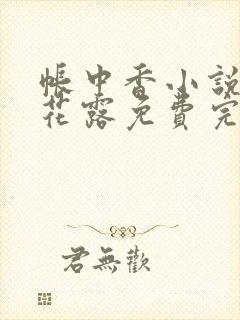 帳中香小說
花露免費完
君無歡